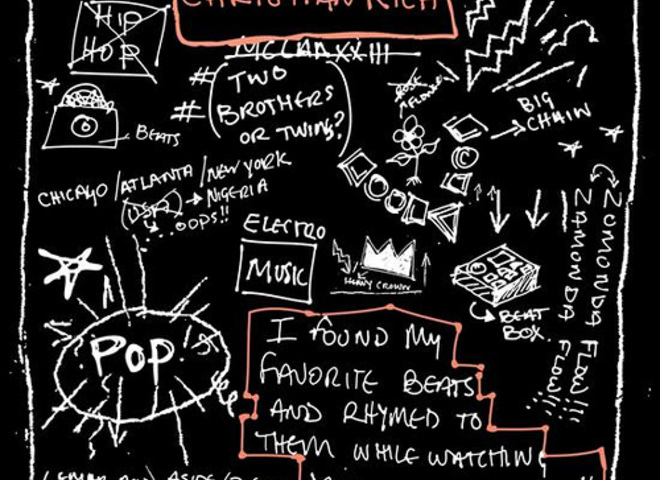 CHRISTIAN RICH
HIP
HOP
MCMLXXXIII
# TWO
# BROTHERS
OR TWINS?
BIG
CHAIN
BEATS
CHICAGO/ATLANTA/NEW YORK
(USA) → NIGERIA
...OOPS!!
ELECTRO
MUSIC
HEAVY CROWN
BEAT
BOX.
ZAMONDA FLOW!!!
POP
I FOUND MY
FAVORITE BEATS
AND RHYMED TO
THEM WHILE WATCHING